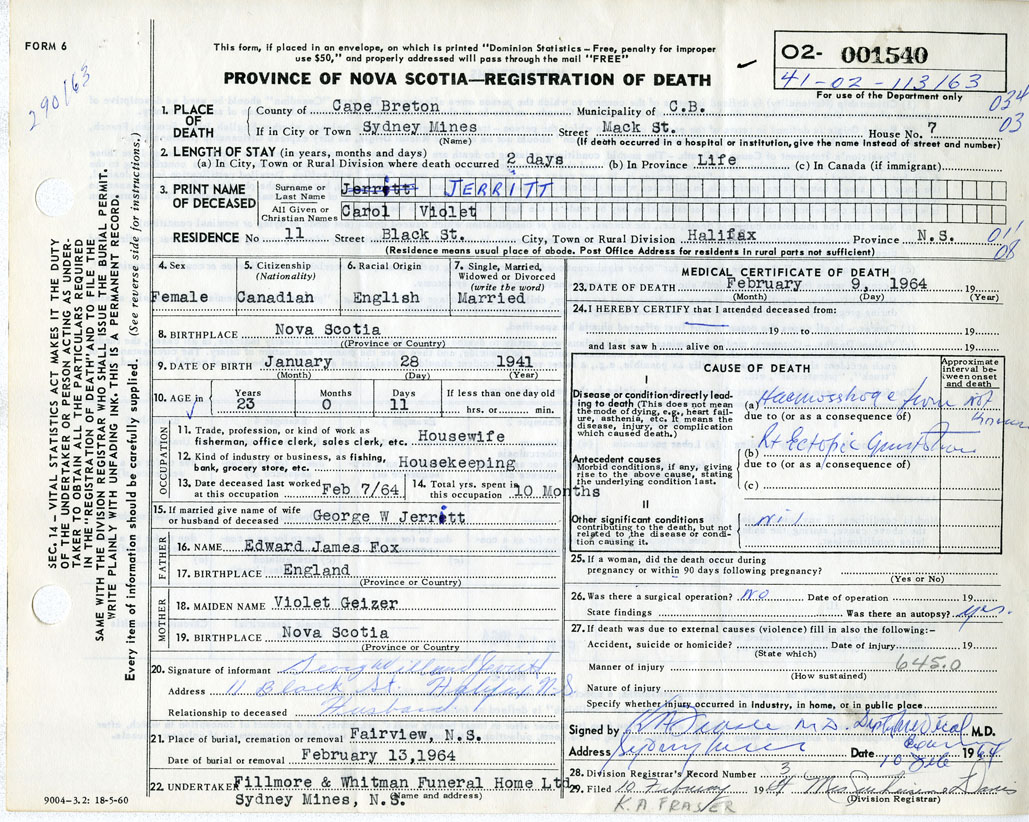 FORM 6
290/63
This form, if placed in an envelope, on which is printed "Dominion Statistics—Free, penalty for improper
use $50," and properly addressed will pass through the mail "FREE"
PROVINCE OF NOVA SCOTIA—REGISTRATION OF DEATH
O2- 001540
41-02-113/63
For use of the Department only
034
03
1. PLACE OF DEATH
County of Cape Breton Municipality of C.B.
If in City or Town Sydney Mines Street Mack St. House No. 7
(Name) (If death occurred in a hospital or institution, give the name instead of street and number)
2. LENGTH OF STAY (in years, months and days)
(a) In City, Town or Rural Division where death occurred 2 days (b) In Province Life (c) In Canada (if immigrant)
3. PRINT NAME OF DECEASED
Surname or Last Name Jerritt JERRITT
All Given or Christian Names Carol Violet
RESIDENCE No 11 Street Black St. City, Town or Rural Division Halifax Province N.S.
011
08
(Residence means usual place of abode. Post Office Address for residents in rural parts not sufficient)
4. Sex
Female
5. Citizenship
(Nationality)
Canadian
6. Racial Origin
English
7. Single, Married, Widowed or Divorced
(write the word)
Married
8. BIRTHPLACE Nova Scotia
(Province or Country)
9. DATE OF BIRTH January 28 1941
(Month) (Day) (Year)
10. AGE in
Years Months Days If less than one day old
23 0 11 hrs. or min.
OCCUPATION
11. Trade, profession, or kind of work as
fisherman, office clerk, sales clerk, etc. Housewife
12. Kind of industry or business, as fishing,
bank, grocery store, etc. Housekeeping
13. Date deceased last worked at this occupation Feb 7/64
14. Total yrs. spent in this occupation 10 Months
15. If married give name of wife
or husband of deceased George W Jerritt
FATHER
16. NAME Edward James Fox
17. BIRTHPLACE England
(Province or Country)
MOTHER
18. MAIDEN NAME Violet Geizer
19. BIRTHPLACE Nova Scotia
(Province or Country
20. Signature of informant
Address 11 Black St. Halifax N.S.
Relationship to deceased Husband
21. Place of burial, cremation or removal Fairview, N.S.
Date of burial or removal February 13,1964
22. UNDERTAKER Fillmore & Whitman Funeral Home Ltd
Sydney Mines, N.S. (Name and address)
MEDICAL CERTIFICATE OF DEATH
23. DATE OF DEATH February 9, 1964 19
(Month) (Day) (Year)
24. I HEREBY CERTIFY that I attended deceased from:
19 to 19
and last saw h alive on 19
CAUSE OF DEATH
Approximate interval between onset and death
I
Disease or condition directly leading to death (This does not mean
the mode of dying, e.g., heart failure, asthenia, etc. It means the
disease, injury, or complication
which caused death.)
(a) Haemorrhage from not
due to (or as a consequence of)
known
Antecedent causes
Morbid conditions, if any, giving
rise to the above cause, stating
the underlying condition last.
(b) Rt Ectopic Gestation
due to (or as a consequence of)
(c)
II
Other significant conditions
contributing to the death, but not
related to the disease or condition causing it.
nil
25. If a woman, did the death occur during
pregnancy or within 90 days following pregnancy?
(Yes or No)
26. Was there a surgical operation? no Date of operation 19
State findings Was there an autopsy? yes.
27. If death was due to external causes (violence) fill in also the following:-
Accident, suicide or homicide? Date of injury 19
(State which)
Manner of injury 645.0
(How sustained)
Nature of injury
Specify whether injury occurred in Industry, in home, or in public place
Signed by M.D. M.D.
Address Sydney Mines Date 10 Feb 1964
28. Division Registrar's Record Number 3
29. Filed 10 February 1964 Mrs Davis
K.A FRASER (Division Registrar)
9004-3.2: 18-5-60
SEC. 14 – VITAL STATISTICS ACT MAKES IT THE DUTY
OF THE UNDERTAKER OR PERSON ACTING AS UNDERTAKER TO OBTAIN ALL THE PARTICULARS REQUIRED
IN THE "REGISTRATION OF DEATH" AND TO FILE THE
SAME WITH THE DIVISION REGISTRAR WHO SHALL ISSUE THE BURIAL PERMIT.
WRITE PLAINLY WITH UNFADING INK. THIS IS A PERMANENT RECORD.
Every item of information should be carefully supplied. (See reverse side for instructions.)